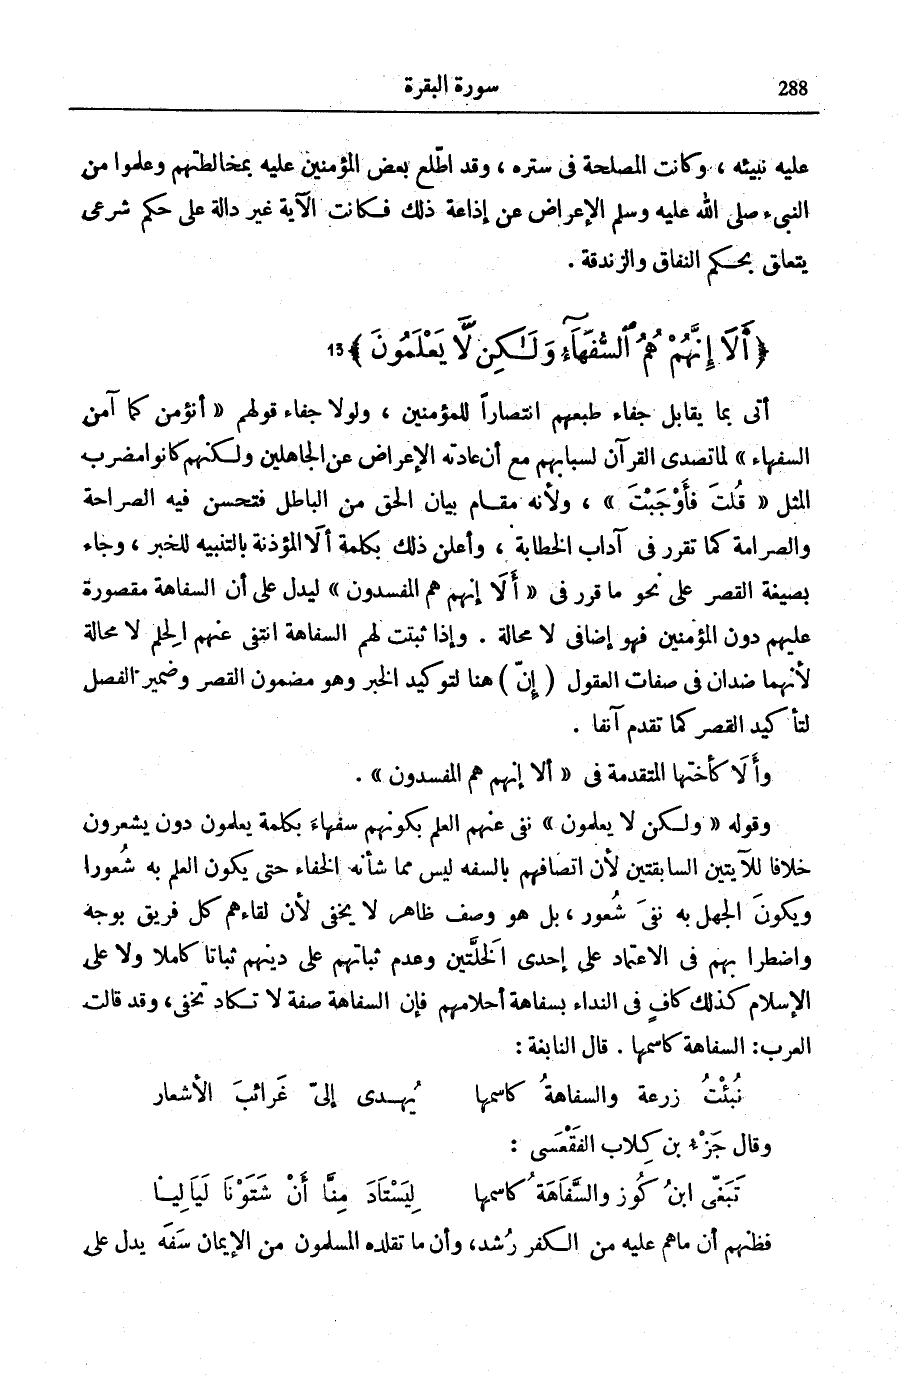 288
سورة البقرة
عليه نبيئه ، وكانت المصلحة فى ستره ، وقد اطّلع بعض المؤمنين عليه بمخالطتهم وعلموا من
النبىء صلى الله عليه وسلم الإعراض عن إذاعة ذلك فكانت الآية غير دالة على حكم شرعى
يتعلق بحكم النفاق والزندقة .
﴿أَلَا إِنَّهُمْ هُمُ ٱلسُّفَهَآءُ وَلَٰكِن لَّا يَعْلَمُونَ﴾13
أتى بما يقابل جفاء طبعهم انتصاراً للمؤمنين ، ولولا جفاء قولهم « أنؤمن كما آمن
السفهاء » لما تصدى القرآن لسبابهم مع أن عادته الإعراض عن الجاهلين ولكنهم كانوا مضرب
المثل « قُلتَ فأَوْجَبْتَ » ، ولأنه مقام بيان الحق من الباطل فتحسن فيه الصراحة
والصرامة كما تقرر فى آداب الخطابة ، وأعلن ذلك بكلمة ألَا المؤذنة بالتنبيه للخبر ، وجاء
بصيغة القصر على نحو ما قرر فى « أَلَا إنهم هم المفسدون » ليدل على أن السفاهة مقصورة
عليهم دون المؤمنين فهو إضافى لا محالة . وإذا ثبتت لهم السفاهة انتفى عنهم الحِلم لا محالة
لأنهما ضدان فى صفات العقول ( إِنّ ) هنا لتوكيد الخبر وهو مضمون القصر وضمير الفصل
لتأكيد القصر كما تقدم آنفا .
وأَلَا كأختها المتقدمة فى « ألا إنهم هم المفسدون » .
وقوله « ولكن لا يعلمون » نفى عنهم العلم بكونهم سفهاءَ بكلمة يعلمون دون يشعرون
خلافا للآيتين السابقتين لأن اتصافهم بالسفه ليس مما شأنه الخفاء حتى يكون العلم به شُعورا
ويكونَ الجهل به نفىَ شُعور ، بل هو وصف ظاهر لا يخفى لأن لقاءهم كل فريق بوجه
واضطرابهم فى الاعتماد على إحدى الخَلَّتين وعدم ثباتهم على دينهم ثباتا كاملا ولا على
الإسلام كذلك كافٍ فى النداء بسفاهة أحلامهم فإن السفاهة صفة لا تكاد تخفى ، وقد قالت
العرب: السفاهة كاسمها . قال النابغة :
نُبِئْتُ زرعة والسفاهةُ كاسمها يُهدى إلىّ غَرائبَ الأشعار
وقال جَزْء بن كِلاب الفَقْعَسى :
تَبَغَّى ابنُ كُوز والسَّفَاهَةُ كاسمها لِيَسْتَادَ مِنَّا أَنْ شَتَوْنَا لَيَالِيا
فظنهم أن ما هم عليه من الكفر رُشد ، وأن ما تقلده المسلمون من الإيمان سَفَه يدل على